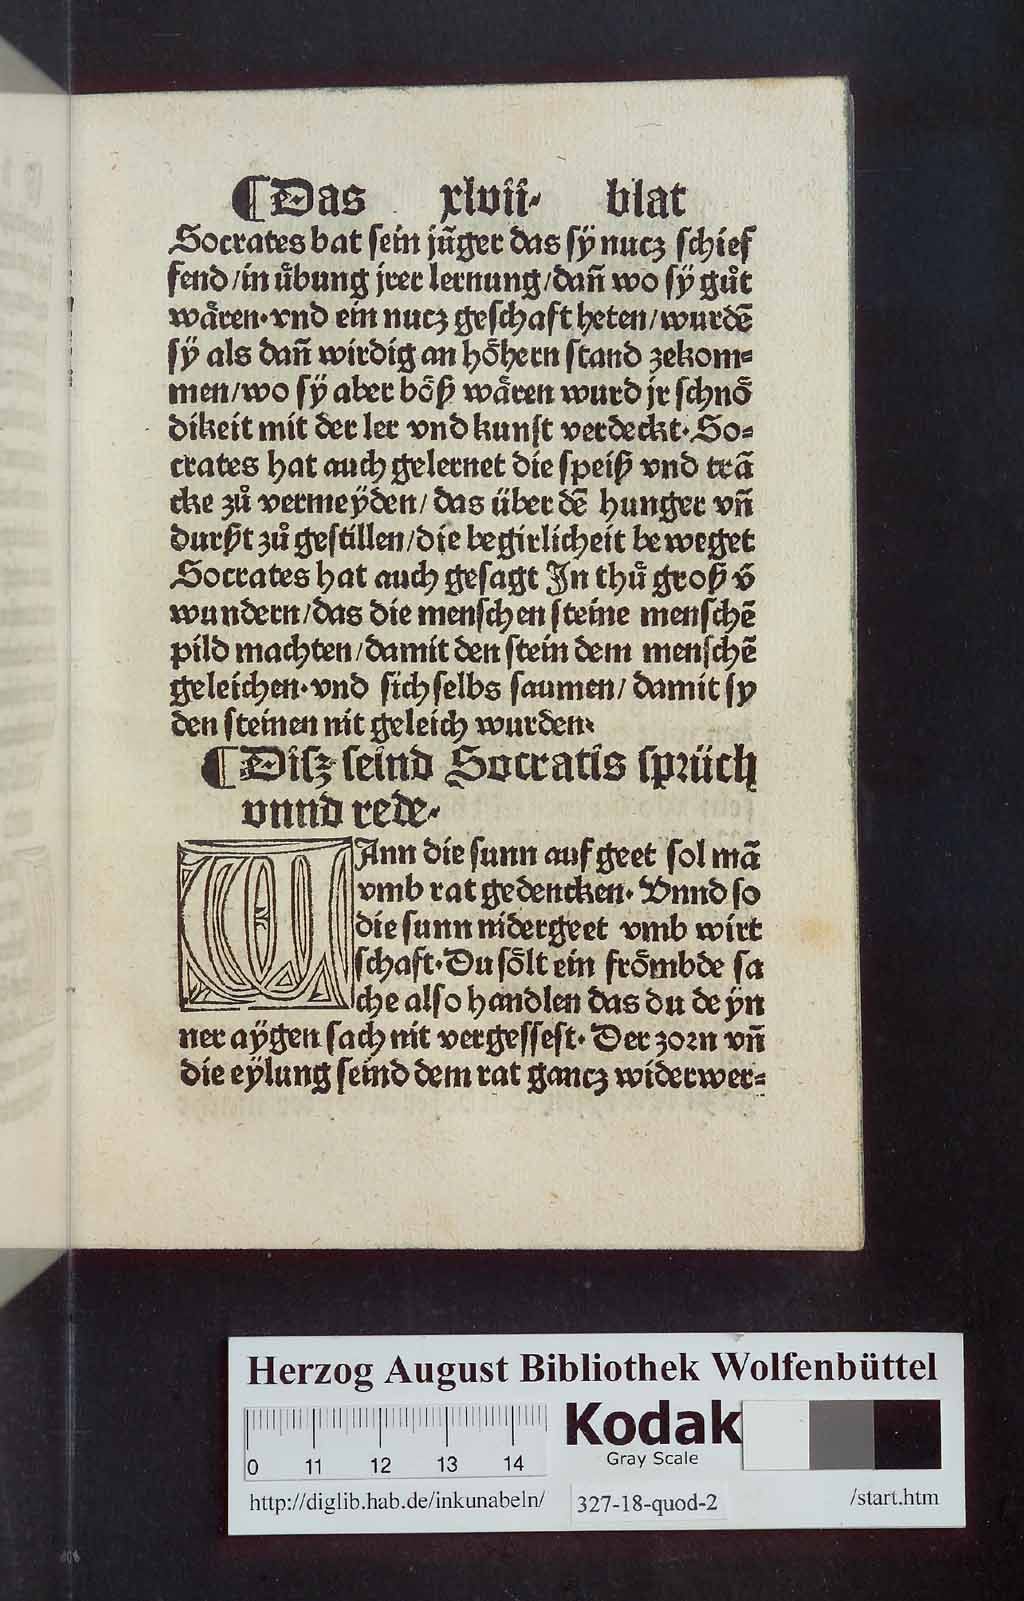 ¶Das xlvii· blat
Socrates bat sein jũger das sÿ nucz schief
fend/in uͤbung jrer lernung/dañ wo sÿ guͦt
waͤren·vnd ein nucz geschaft heten/wurdẽ
sÿ als dañ wirdig an hoͤhern stand zekom⸗
men/wo sÿ aber boͤß waͤren wurd jr schnoͤ
dikeit mit der ler vnd kunst verdeckt·So⸗
crates hat auch gelernet die speiß vnd trã
cke zuͦ vermeÿden/das über dẽ hunger vñ
durßt zuͦ gestillen/die begirlicheit beweget
Socrates hat auch gesagt Jn thuͦ groß v̄
wundern/das die menschen steine menschẽ
pild machten/damit den stein dem menschẽ
geleichen·vnd sich selbs saumen/damit sy
den steinen nit geleich wurden·
¶Disz seind Socratis sprüch
vnnd rede·
WAnn die sunn auf geet sol mã
vmb rat gedencken· Vnnd so
die sunn nidergeet vmb wirt
schaft·Du soͤlt ein froͤmbde sa
che also handlen das du deÿn
ner aÿgen sach nit vergessest· Der zorn vñ
die eÿlung seind dem rat gancz widerwer⸗
Herzog August Bibliothek Wolfenbüttel
0 11 12 13 14
Kodak
Gray Scale
http://diglib.hab.de/inkunabeln/ 327-18-quod-2 /start.htm